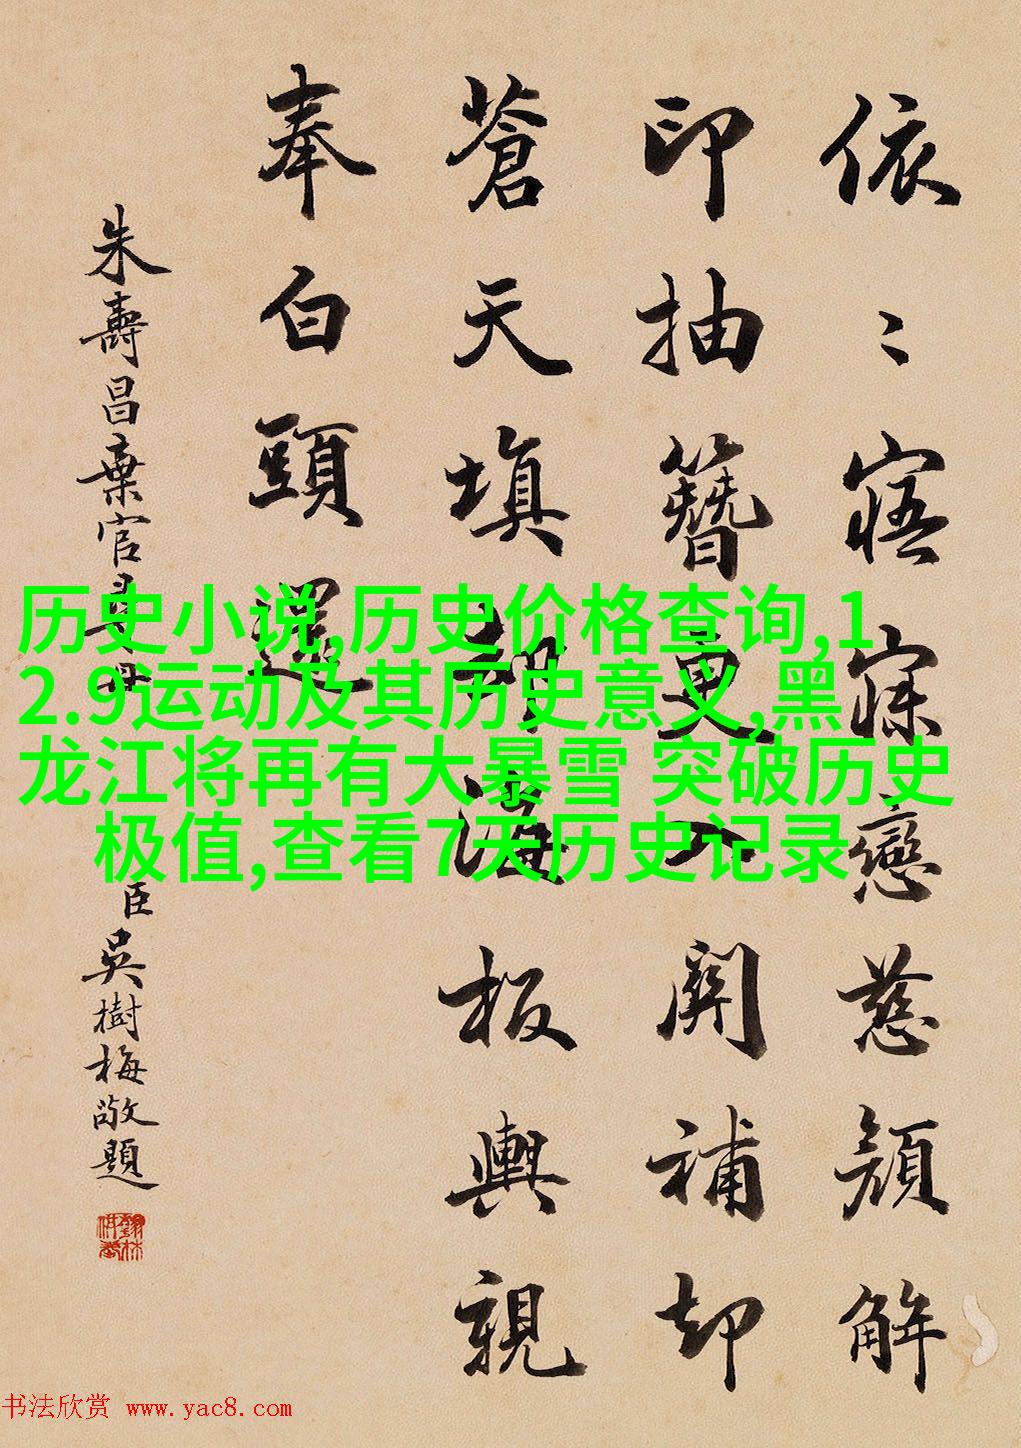 依〻寤寐戀慈顏解
印抽簪更入關補却
蒼天填却海板輿親
奉白頭還
朱壽昌棄官尋母
臣吳樹梅敬題
历史小说,历史价格查询,1
2.9运动及其历史意义,黑
龙江将再有大暴雪 突破历史
极值,查看7天历史记录
书法欣赏 www.yac8.com